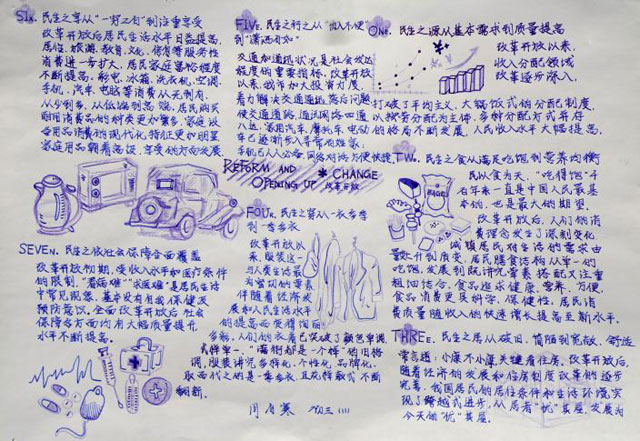 SIX. 民生之享从“一烛之旬”到注重享受
改革开放后居民生活水平日益提高,
居住、旅游、教育、文化、体育等服务性
消费进一步扩大,居民家庭富裕程度
不断提高,彩电、冰箱、洗衣机、空调、
手机、汽车、电脑等消费从无到有,
从少到多,从低端到高端,居民购买
耐用消费品的种类更加繁多,家庭设
备用品消费的现代化特征更加明显,
家庭用品朝着高级、享受的方向发展.
FIVE. 民生之行之从“出入不便”
到“潇洒自如”
交通和通讯状况是社会发达
程度的重要指标,改革开放
以来,我市加大投资力度,
着力解决交通通讯落后问题
使交通道路,通讯网络四通
八达,家用汽车、摩托车、电动
车已逐渐步入寻常百姓家,
手机已人人必备,网络对话方便快捷.
ONE. 民生之源从基本需求到质量提高
改革开放以来,
收入分配领域
改革逐步深入,
打破了平均主义、大锅饭式的分配制度,
以按劳分配为主体,多种分配方式并存
的格局不断发展,人民收入水平大幅提高.
REFORM AND CHANGE
OPENING UP 改革开放
TWO. 民生之食从满足吃饱到营养均衡
民以食为天,“吃得饱”千
百年来一直是中国人民最基
本的,也是最大的期望.
改革开放后,人们的消
费理念发生了深刻变化
城镇居民对生活的需求由
量的升到质变,居民膳食结构从单一的
吃饱,发展到既讲究营养搭配又注重
粗细结合,食品追求健康、营养、方便,
食品消费更具科学、保健性,居民消
费质量随收入的快速增长提高至新水平.
FOUR. 民生之穿从一衣多季
到一季多衣
改革开放以
来,服装这一
与人类生活最
为密切的需要
伴随着经济发
展和人民生活水平
的提高而变得绚丽
多彩,人们的衣着已突破了颜色单调
式样单一,“满街都是一个样”的旧格
调,服装讲究多样化、个性化、品牌化,
取而代之的是一季多衣,且花样款式不断
翻新.
SEVEN. 民生之依社会保障全面覆盖
改革开放初期,受收入水平和医疗条件
的限制,“看病难”“求医难”是居民生活
中常见现象,基本没有自我保健及
预防意识,全面改革开放后社会
保障各方面均有大幅质量提升,
水平不断提高.
THREE. 民生之居从破旧、简陋到宽敞、舒适
常言道:小康不小康关键看住房,改革开放后,
随着经济的发展和住房制度改革的逐步
完善,我国居民的居住条件和生活环境实
现了跨越式进步,从居者“忧”其屋,发展为
今天的“优”其屋.